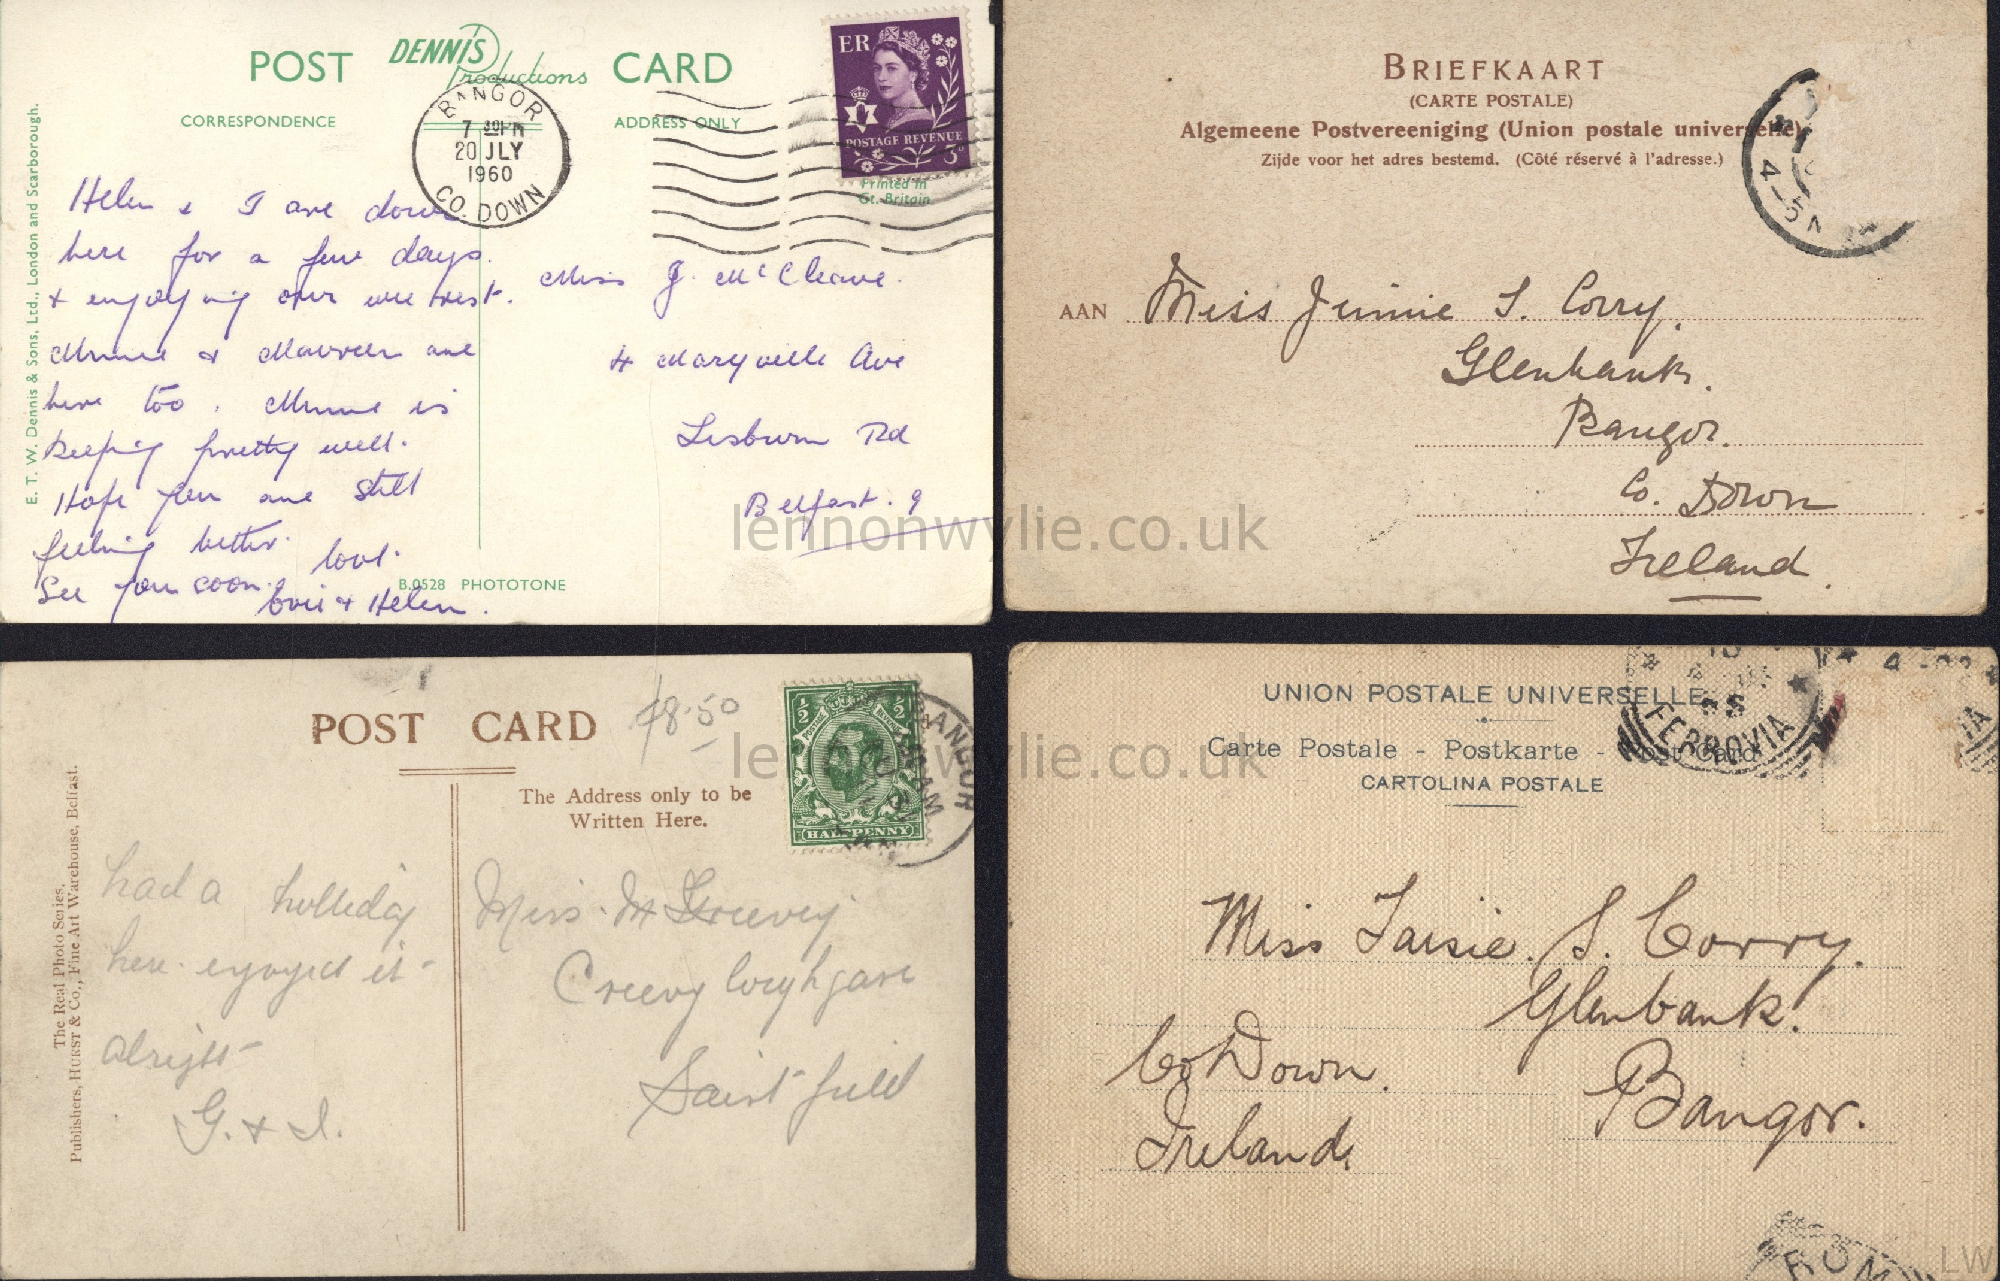 POST DENNIS Productions CARD
CORRESPONDENCE
ADDRESS ONLY
BANGOR
7 30PM
20 JLY
1960
CO. DOWN
ER
POSTAGE REVENUE
3D
Printed in
Gt. Britain
E. T. W. Dennis & Sons, Ltd., London and Scarborough.
Helen & I are down
here for a few days
& enjoying our wee rest.
Minnie & Maureen are
here too. Minnie is
keeping pretty well.
Hope you are still
feeling better.
See you soon. love
Evie & Helen.
Miss J. McCleave.
4 Maryville Ave
Lisburn Rd
Belfast. 9
B.0528 PHOTOTONE
BRIEFKAART
(CARTE POSTALE)
Algemeene Postvereeniging (Union postale universelle)
Zijde voor het adres bestemd. (Côté réservé à l'adresse.)
4-5
AAN Miss Jinnie S. Corry.
Glenbank.
Bangor.
Co. Down
Ireland.
lennonwylie.co.uk
POST CARD
£8.50
The Address only to be
Written Here.
½ ½
POSTAGE
HALFPENNY
BANGOR
The Real Photo Series.
Publishers, HURST & Co., Fine Art Warehouse, Belfast.
had a holleday
here enjoyed it
alright
G. & I.
Miss M Greevey
Creevyloughgare
Saintfield
lennonwylie.co.uk
UNION POSTALE UNIVERSELLE
Carte Postale - Postkarte - Post Card
CARTOLINA POSTALE
FERROVIA
Miss Taisie. S. Corry.
Glenbank.
Bangor.
Co Down.
Ireland.
ROM
LW